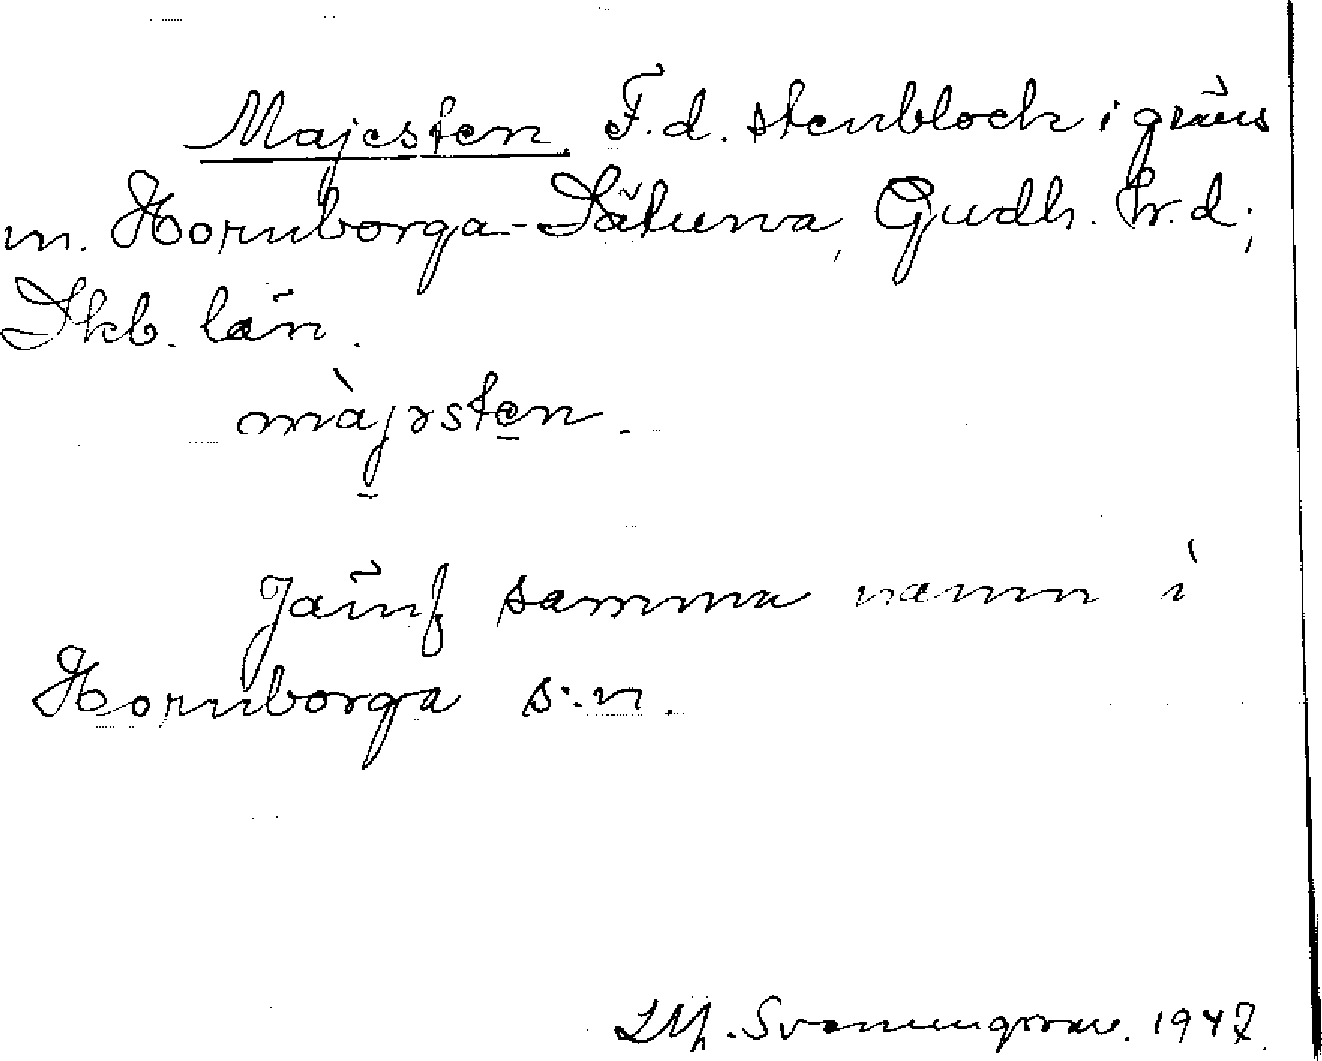 Majesten. F.d. stenblock i gräns
m. Hornborga-Sätuna, Gudh. hr.d;
Skb. län.
màjəsten.
Jämf samma namn i
Hornborga s:n.
1947.